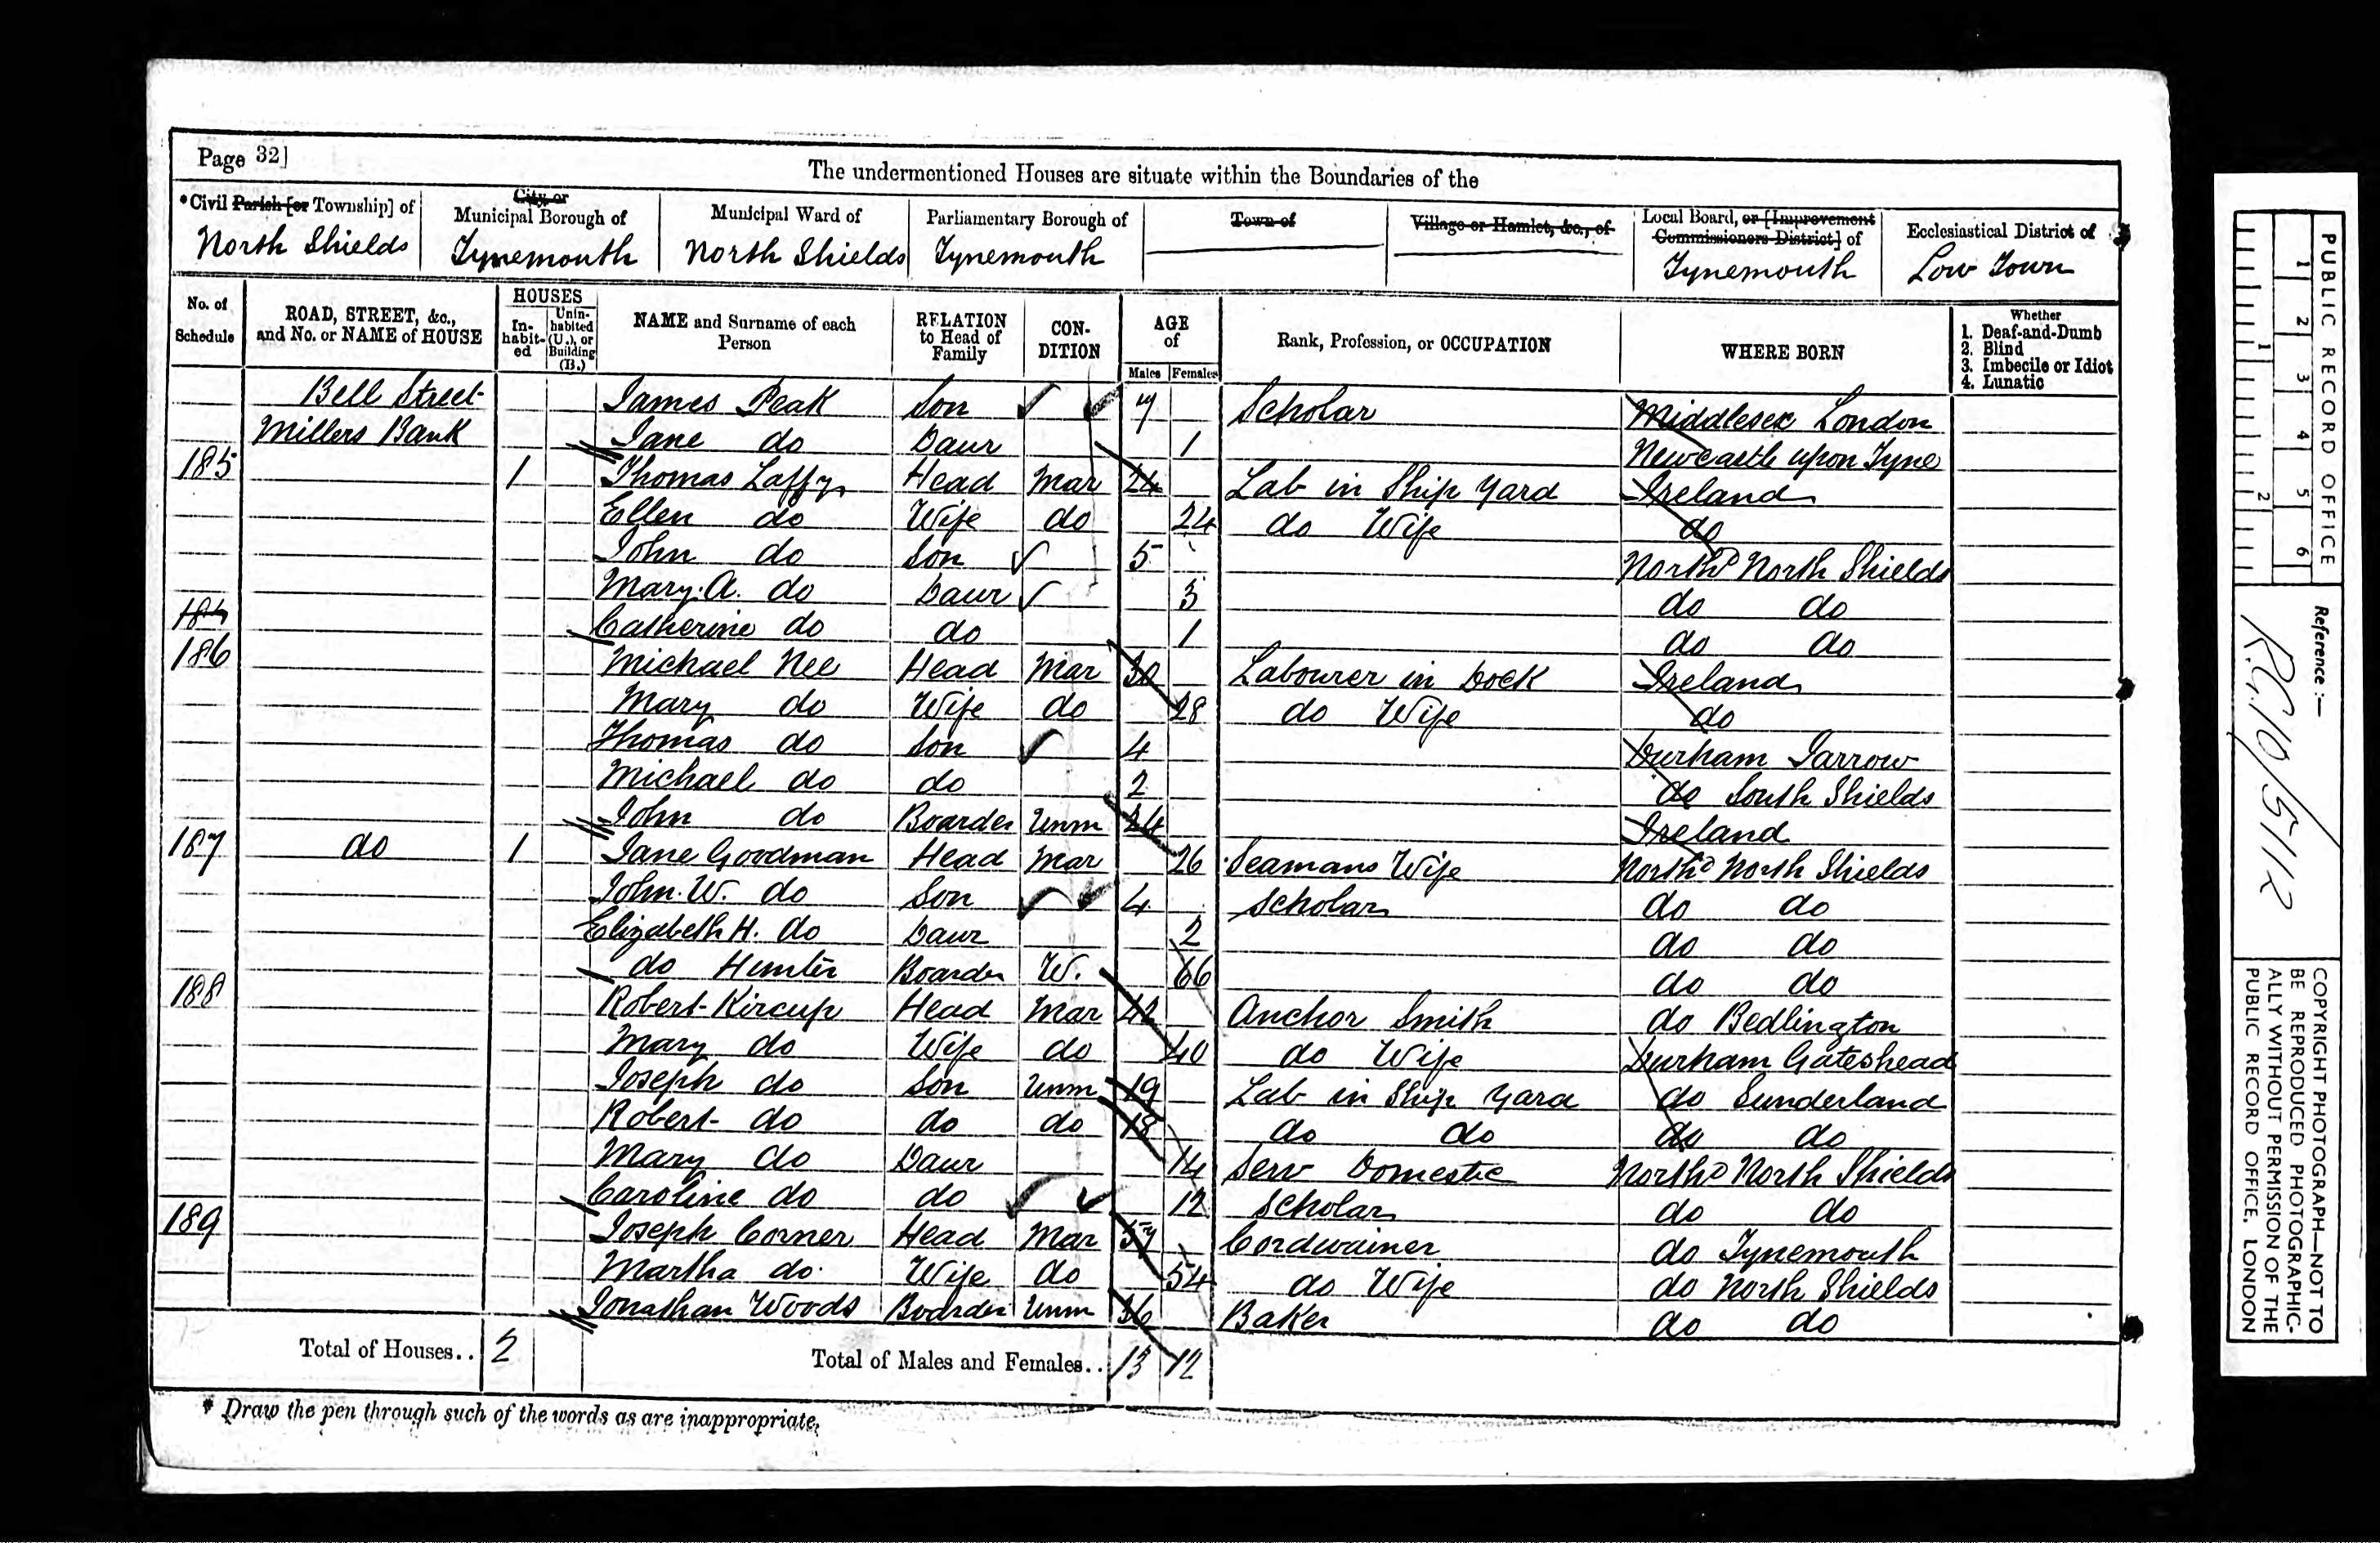 Page 32]
The undermentioned Houses are situate within the Boundaries of the
*Civil Parish [or Township] of
City or Municipal Borough of
Municipal Ward of
Parliamentary Borough of
Town of
Village or Hamlet, &c., of
Local Board, or [Improvement Commissioners District] of
Ecclesiastical District of
North Shields
Tynemouth
North Shields
Tynemouth
Tynemouth
Low Town
No. of Schedule
ROAD, STREET, &c., and No. or NAME of HOUSE
HOUSES
In-habit-ed
Unin-habited (U.), or Building (B.)
NAME and Surname of each Person
RELATION to Head of Family
CON-DITION
AGE of
Males
Females
Rank, Profession, or OCCUPATION
WHERE BORN
Whether
1. Deaf-and-Dumb
2. Blind
3. Imbecile or Idiot
4. Lunatic
Bell Street James Peak Son 7 Scholar Middlesex London
Millers Bank Jane do Daur 1 Newcastle upon Tyne
185 1 Thomas Laffy Head Mar 24 Lab in Ship Yard Ireland
Ellen do Wife do 24 do Wife do
John do Son 5 Northd North Shields
Mary. A. do Daur 3 do do
Catherine do do 1 do do
186 Michael Nee Head Mar 30 Labourer in Dock Ireland
Mary do Wife do 28 do Wife do
Thomas do Son 4 Durham Jarrow
Michael do do 2 do South Shields
John do Boarder Unm 24 Ireland
187 do 1 Jane Goodman Head Mar 26 Seamans Wife Northd North Shields
John. W. do Son 4 Scholar do do
Elizabeth H. do Daur 2 do do
do Hunter Boarder W. 66 do do
188 Robert Kircup Head Mar 42 Anchor Smith do Bedlington
Mary do Wife do 40 do Wife Durham Gateshead
Joseph do Son Unm 19 Lab in Ship Yard do Sunderland
Robert do do do 18 do do do do
Mary do Daur 14 Serv Domestic Northd North Shields
Caroline do do 12 Scholar do do
189 Joseph Corner Head Mar 57 Cordwainer do Tynemouth
Martha do Wife do 54 do Wife do North Shields
Jonathan Woods Boarder Unm 36 Baker do do
Total of Houses.. 2
Total of Males and Females.. 13 12
* Draw the pen through such of the words as are inappropriate.
PUBLIC RECORD OFFICE
1 2 3 4 5 6
1 2
Reference :—
R.G. 10/5112
COPYRIGHT PHOTOGRAPH—NOT TO
BE REPRODUCED PHOTOGRAPHIC-
ALLY WITHOUT PERMISSION OF THE
PUBLIC RECORD OFFICE, LONDON